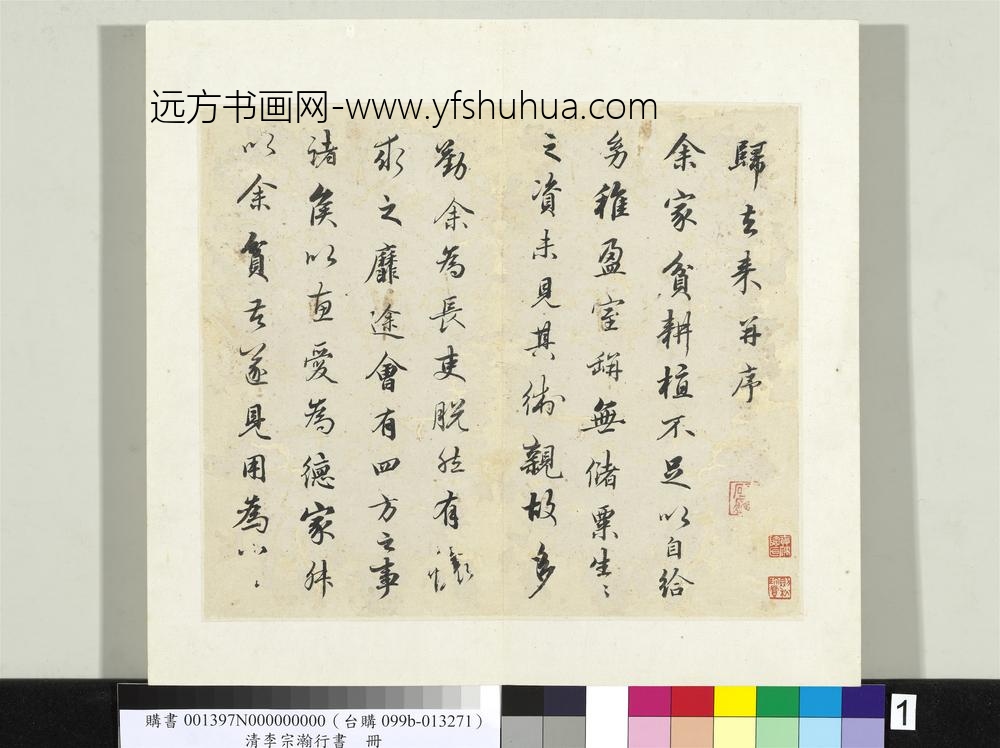 远方书画网-www.yfshuhua.com
歸去来并序
余家貧耕植不足以自給
幼稚盈室缾無儲粟生〻
之資未見其術親故多
勸余為長吏脱然有懷
求之靡途會有四方之事
諸侯以惠愛為德家叔
以余貧苦遂見用為小〻
購書 001397N000000000（台購 099b-013271）
清李宗瀚行書 冊
1